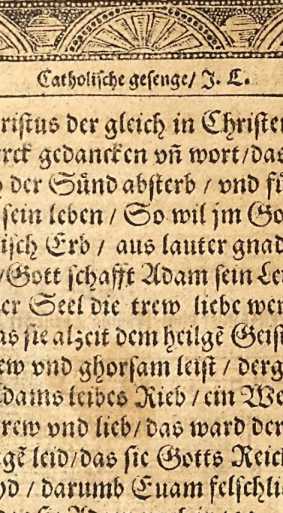 Catholische gesenge/ J. C.
ristus der gleich in Christen
erck gedancken vñ wort/das
der Sünd absterb / vnd fü
sein leben / So wil jm Go
isch Erb / aus lauter gnad
/Gott schafft Adam sein Lei
er Seel die trew liebe wer
as sie alzeit dem heilgē Geist
ew vnd ghorsam leist / derg
dams leibes Rieb / ein We
rew vnd lieb/das ward der
gē leid/das sie Gotts Reich
d / darumb Euam felschlic